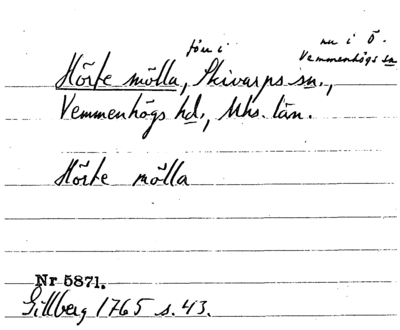 förr i
nu i Ö.
Vemmenhögs sn
Hörte mölla, Skivarps sn.,
Vemmenhögs hd., Mhs. län.
Hörte mölla
Nr 5871.
Gillberg 1765 s. 43.